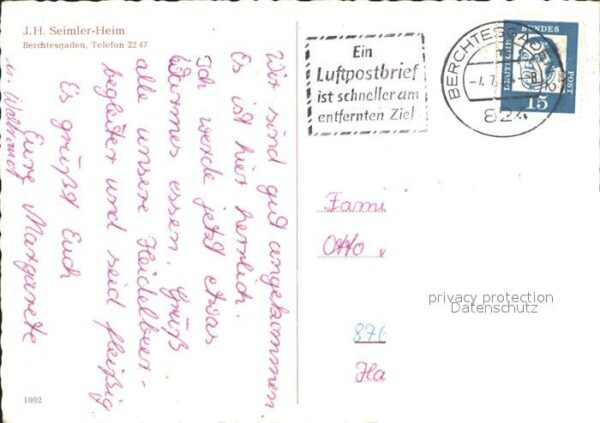 J. H. Seimler-Heim
Berchtesgaden, Telefon 22 47
Wir sind gut angekommen.
Es ist hier herrlich.
Ich werde jetzt etwas
Warmes essen. Grüß
alle unsere Heidelbeer-
begleiter und seid fleißig.
Es grüßt Euch
Eure Margarete
u. Helmut
1002
Ein
Luftpostbrief
ist schneller am
entfernten Ziel
BERCHTESGADEN
824
DEUTSCHE BUNDESPOST
15
Fami
Otto
876
Ha
privacy protection
Datenschutz